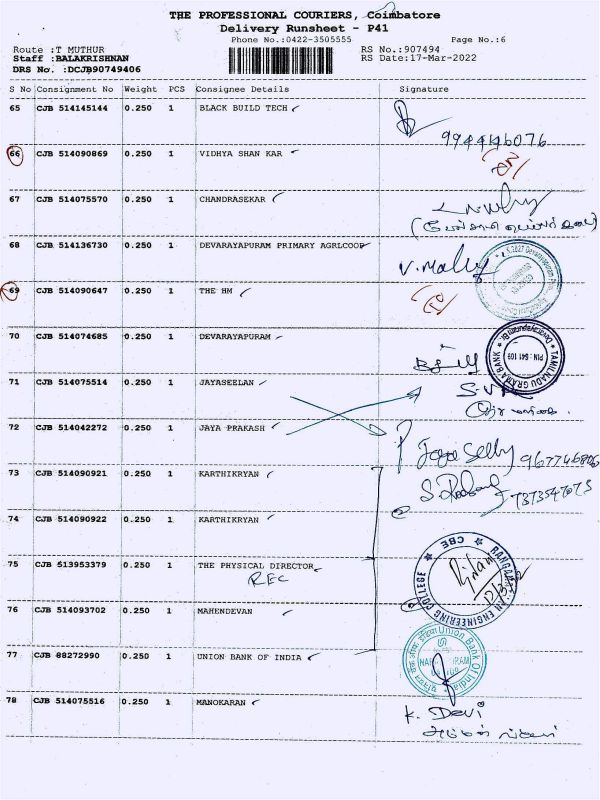 THE PROFESSIONAL COURIERS, Coimbatore
Delivery Runsheet - P41
Phone No.:0422-3505555 Page No.:6
Route :T MUTHUR RS No.:907494
Staff :BALAKRISHNAN RS Date:17-Mar-2022
DRS No. :DCJB90749406
S No Consignment No Weight PCS Consignee Details Signature
65 CJB 514145144 0.250 1 BLACK BUILD TECH
66 CJB 514090869 0.250 1 VIDHYA SHAN KAR
67 CJB 514075570 0.250 1 CHANDRASEKAR
68 CJB 514136730 0.250 1 DEVARAYAPURAM PRIMARY AGRLCOOP
V. Mally
69 CJB 514090647 0.250 1 THE HM
70 CJB 514074685 0.250 1 DEVARAYAPURAM
TAMILNADU GRAMA BANK
PIN 641 109
71 CJB 514075514 0.250 1 JAYASEELAN
72 CJB 514042272 0.250 1 JAYA PRAKASH
73 CJB 514090921 0.250 1 KARTHIKRYAN
74 CJB 514090922 0.250 1 KARTHIKRYAN
75 CJB 513953379 0.250 1 THE PHYSICAL DIRECTOR
REC
ENGINEERING COLLEGE
CBE
76 CJB 514093702 0.250 1 MAHENDEVAN
77 CJB 88272990 0.250 1 UNION BANK OF INDIA
Union Bank Of India
78 CJB 514075516 0.250 1 MANOKARAN
K. Devi